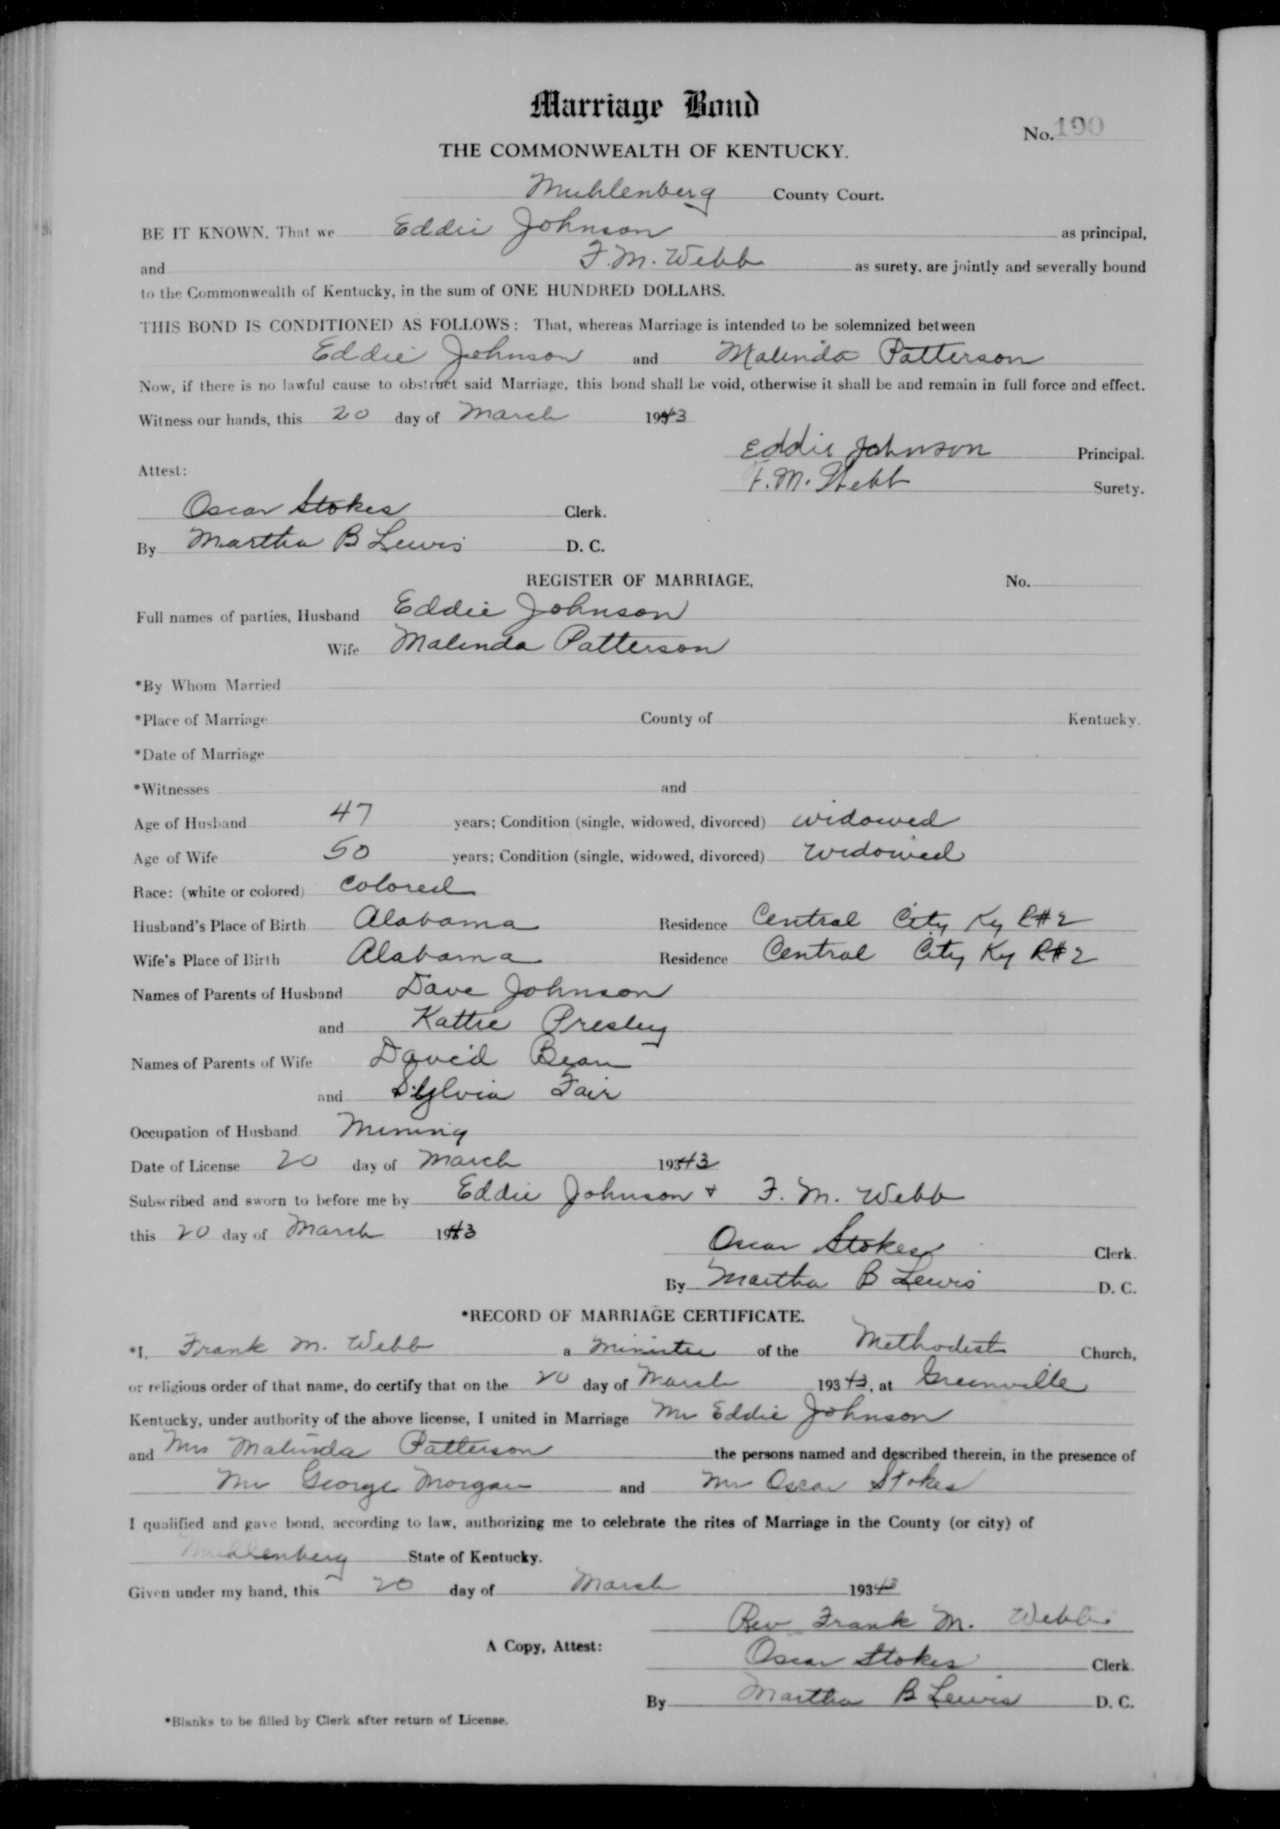 Marriage Bond
No. 190
THE COMMONWEALTH OF KENTUCKY.
Muhlenberg County Court.
BE IT KNOWN, That we Eddie Johnson as principal,
and F. M. Webb as surety, are jointly and severally bound
to the Commonwealth of Kentucky, in the sum of ONE HUNDRED DOLLARS.
THIS BOND IS CONDITIONED AS FOLLOWS: That, whereas Marriage is intended to be solemnized between
Eddie Johnson and Malinda Patterson
Now, if there is no lawful cause to obstruct said Marriage, this bond shall be void, otherwise it shall be and remain in full force and effect.
Witness our hands, this 20 day of March 1943
Eddie Johnson Principal.
Attest:
F. M. Webb Surety.
Oscar Stokes Clerk.
By Martha B Lewis D. C.
REGISTER OF MARRIAGE, No.
Full names of parties, Husband Eddie Johnson
Wife Malinda Patterson
*By Whom Married
*Place of Marriage County of Kentucky.
*Date of Marriage
*Witnesses and
Age of Husband 47 years; Condition (single, widowed, divorced) widowed
Age of Wife 50 years; Condition (single, widowed, divorced) widowed
Race: (white or colored) colored
Husband's Place of Birth Alabama Residence Central City Ky R#2
Wife's Place of Birth Alabama Residence Central City Ky R#2
Names of Parents of Husband Dave Johnson
and Kattie Presley
Names of Parents of Wife David Bean
and Sylvia Fair
Occupation of Husband Mining
Date of License 20 day of March 19343
Subscribed and sworn to before me by Eddie Johnson + F. M. Webb
this 20 day of March 1943
Oscar Stokes Clerk.
By Martha B Lewis D. C.
*RECORD OF MARRIAGE CERTIFICATE.
*I, Frank M. Webb a Minister of the Methodist Church,
or religious order of that name, do certify that on the 20 day of March 19343, at Greenville
Kentucky, under authority of the above license, I united in Marriage Mr Eddie Johnson
and Mrs Malinda Patterson the persons named and described therein, in the presence of
Mr George Morgan and Mr Oscar Stokes
I qualified and gave bond, according to law, authorizing me to celebrate the rites of Marriage in the County (or city) of
Muhlenberg State of Kentucky.
Given under my hand, this 20 day of March 19343
Rev Frank M. Webb
A Copy, Attest:
Oscar Stokes Clerk.
By Martha B Lewis D. C.
*Blanks to be filled by Clerk after return of License.